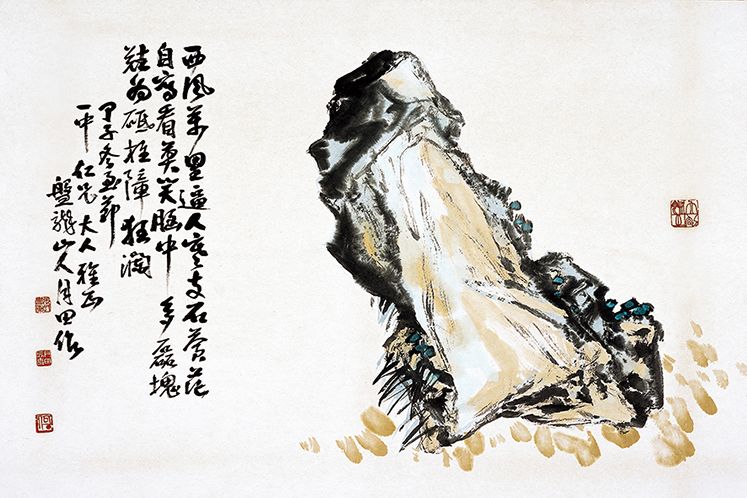 西風萬里逼人寒支石蒼茫
自寫看莫笑胸中多磊塊
為砥柱障狂瀾
甲子冬至節
一中仁兄大人雅正
盤龍山人月田作